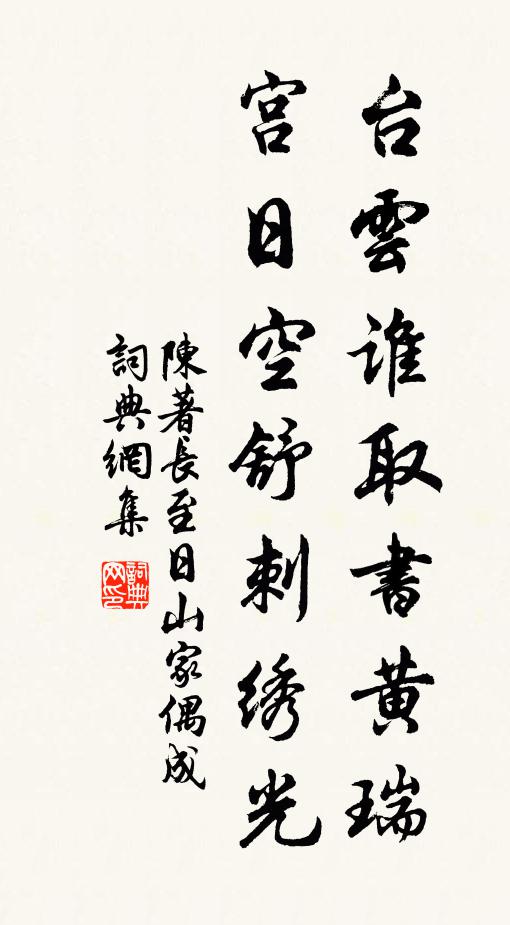 台雲谁取書黄瑞
宫日空舒刺绣光
陳著長至日山家偶成
詞典網集
詞典网印